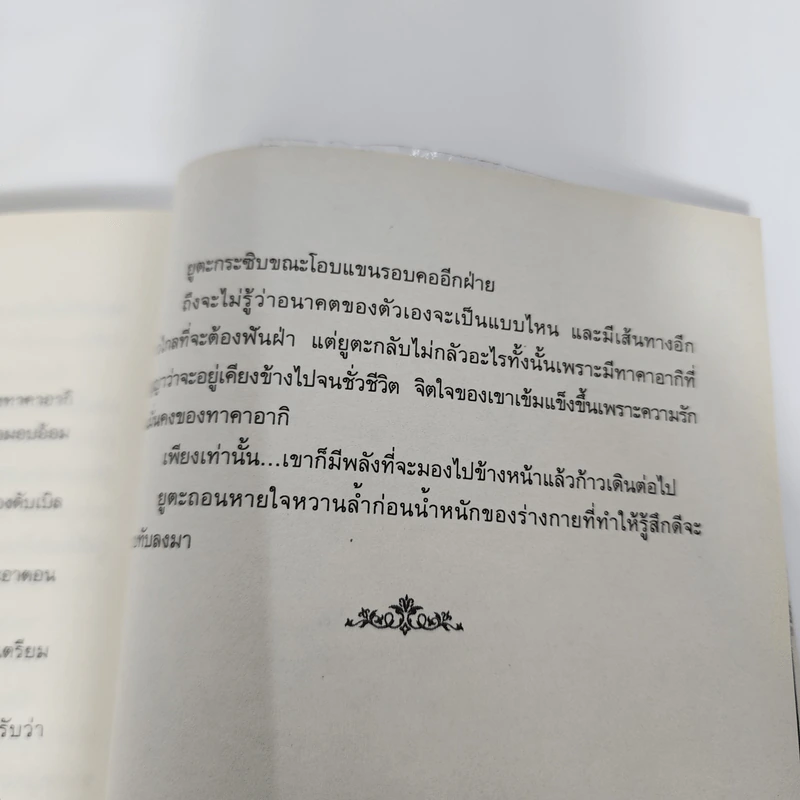 งทาคาอากิ
มอบอ้อม
องตับเบิล
ะอาตอน
เตรียม
รับว่า
ยูตะกระซิบขณะโอบแขนรอบคออีกฝ่าย
ถึงจะไม่รู้ว่าอนาคตของตัวเองจะเป็นแบบไหน และมีเส้นทางอีก
ไกลที่จะต้องฟันฝ่า แต่ยูตะกลับไม่กลัวอะไรทั้งนั้นเพราะมีทาคาอากิที่
ญาว่าจะอยู่เคียงข้างไปจนชั่วชีวิต จิตใจของเขาเข้มแข็งขึ้นเพราะความรัก
มั่นคงของทาคาอากิ
เพียงเท่านั้น...เขาก็มีพลังที่จะมองไปข้างหน้าแล้วก้าวเดินต่อไป
ยูตะถอนหายใจหวานล้ำก่อนน้ำหนักของร่างกายที่ทำให้รู้สึกดีจะ
ทับลงมา